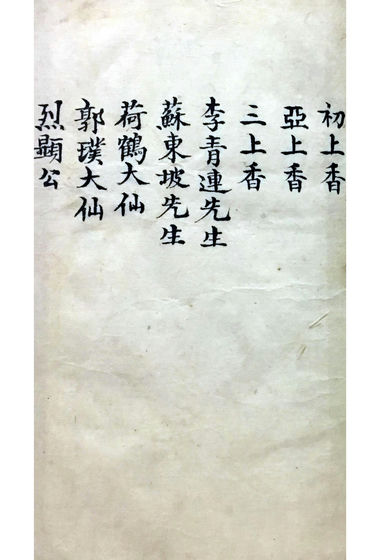 初上香
亞上香
三上香
李青連先生
蘇東坡先生
荷鶴大仙
郭璞大仙
烈顯公